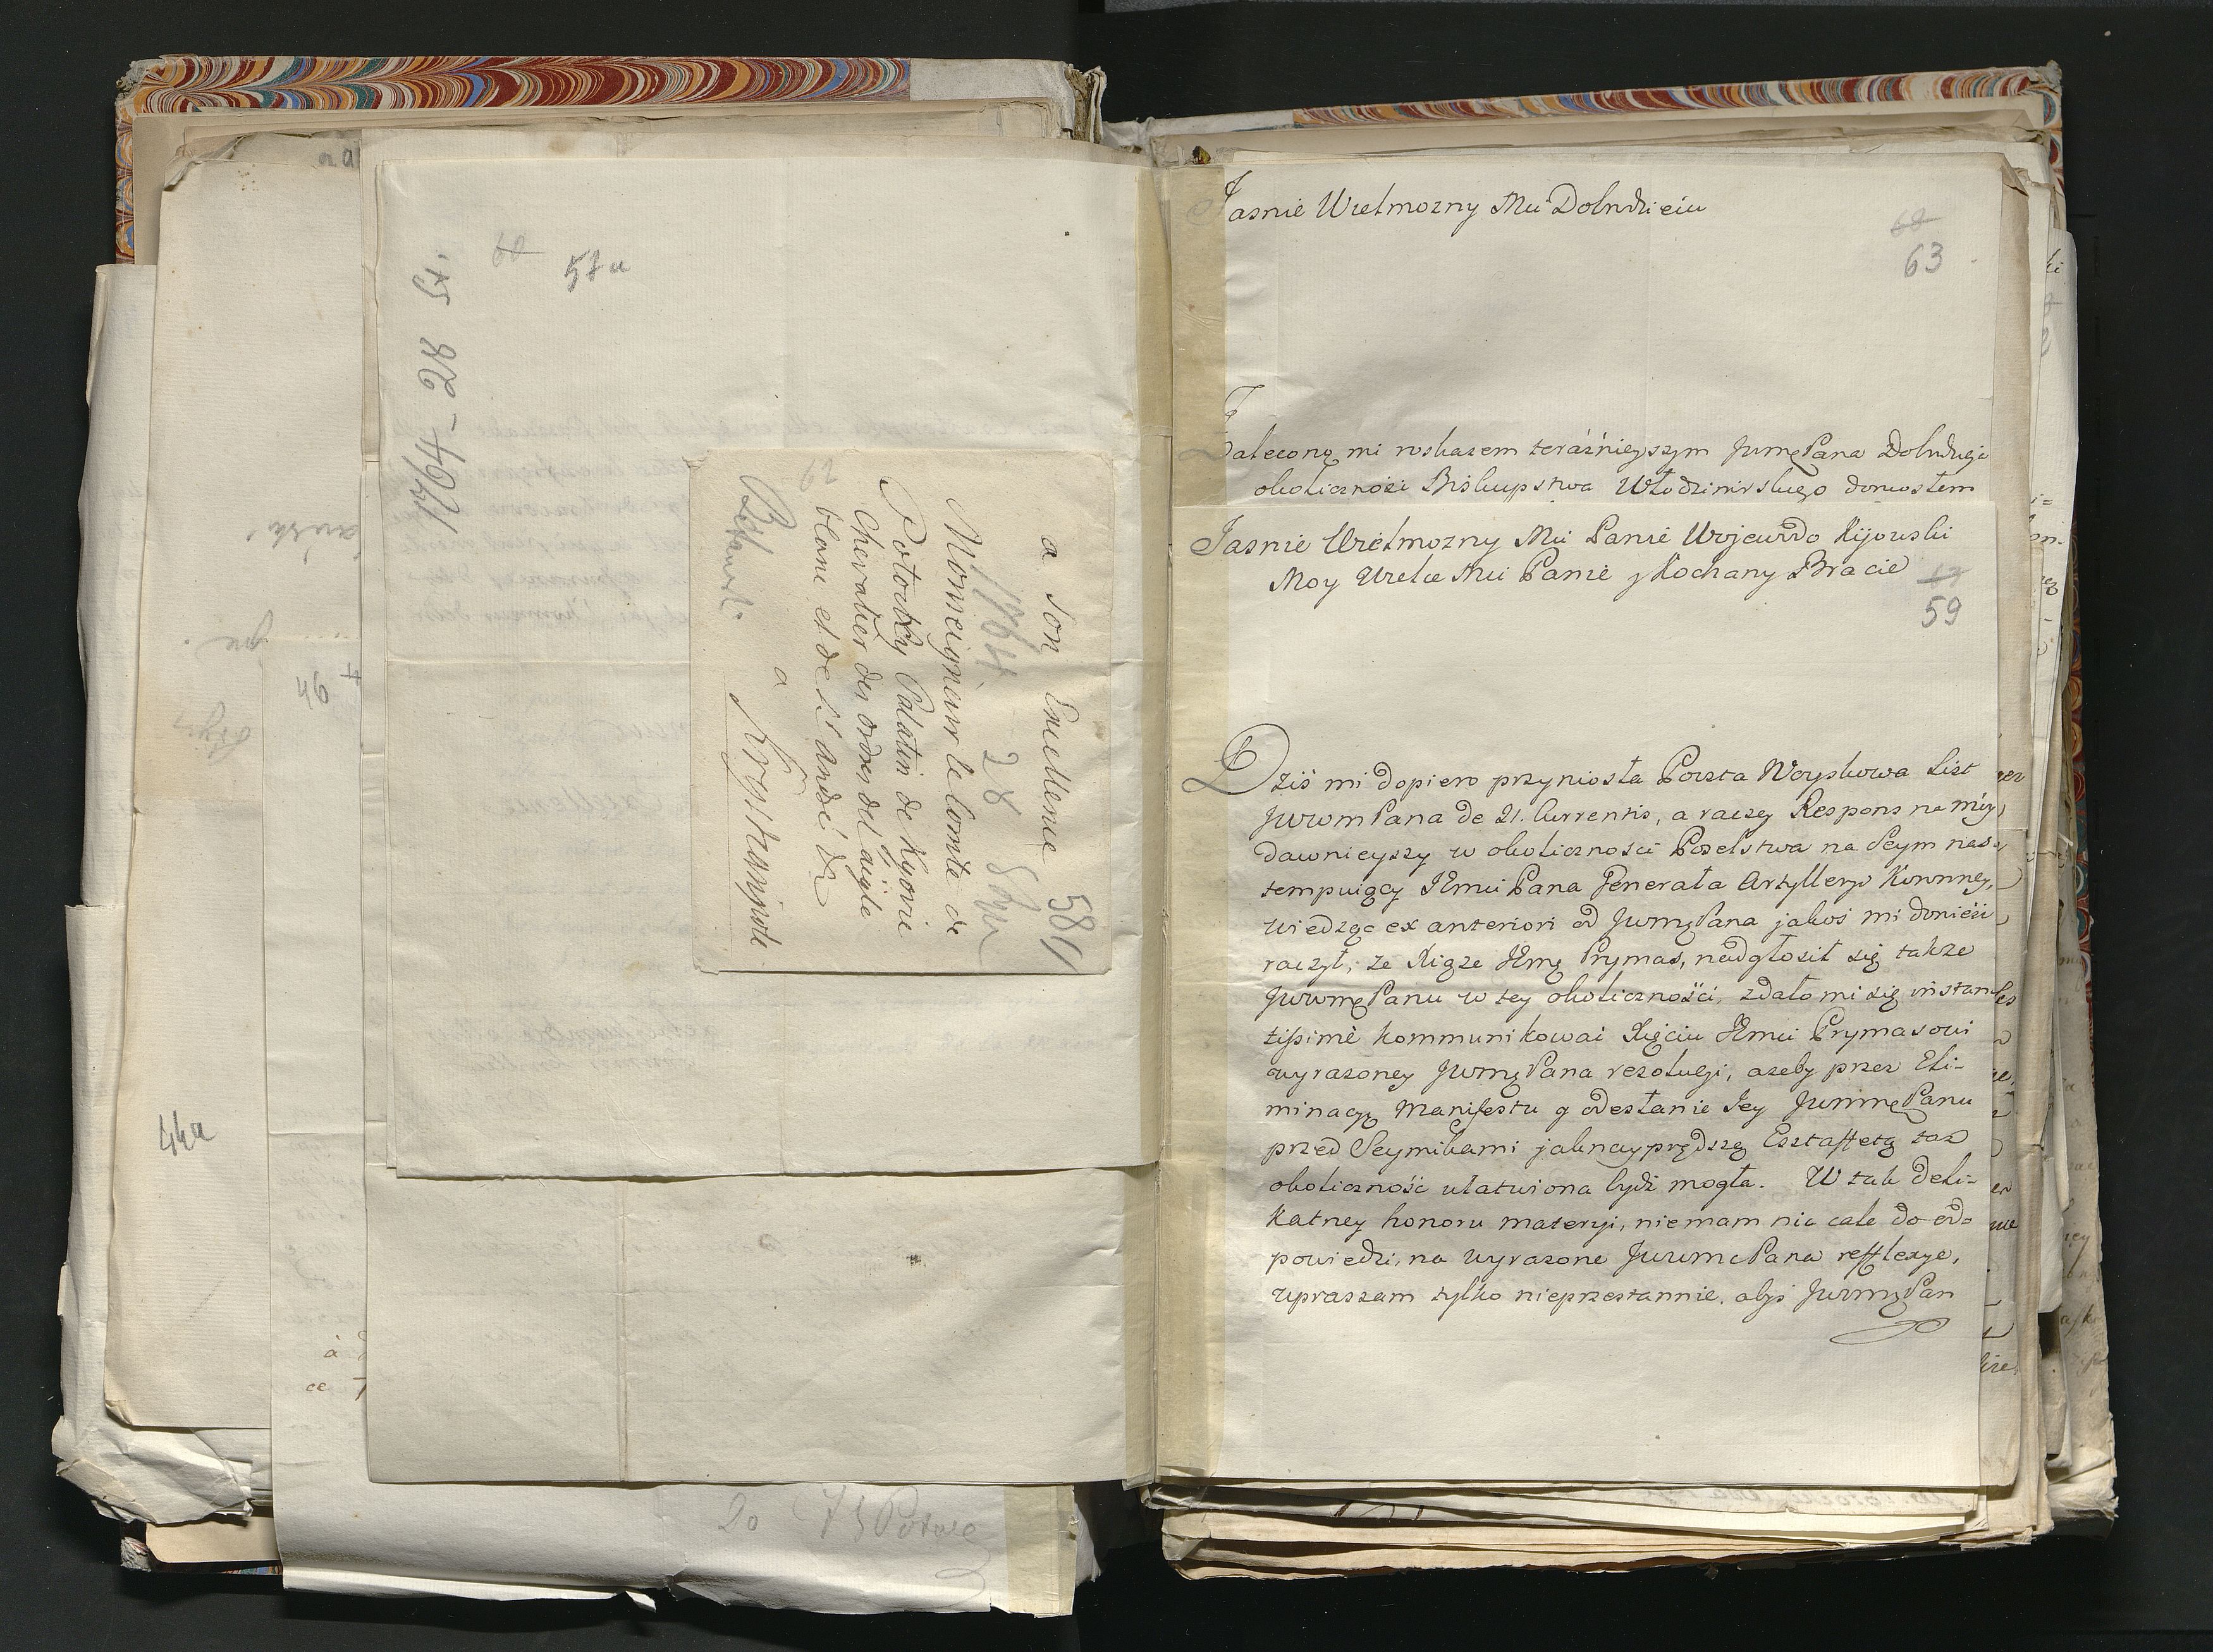 57a
1764 – 28 St.
a Son Excellence
581
1764 – 28
Monseigneur le Comte de
Potocky Palatin de Kyovie
Chevalier des ordres de l'aigle
blanc et de St. André &
a
Krystianpole
62
44a
94
20
Jasnie Wielmozny Mci Dobrodzieiu
63
Zaleconą mi roskazem teraźnieyszym Jwmę Pana Dobrodzieja
okolicznośi Biskupstwa Włodzimirskiego doniosłem
Jasnie Wielmozny Mci Panie Wojewodo Kijowski
Moy Wielce Mci Panie y Kochany Bracie
59
Dziś mi dopiero przyniosła Poczta Woyskowa List
JwwmPana de 21. Currentis, a raczey Respons na moy
dawnieyszy w okolicznosci Poselstwa na Seym nas-
tempuiący JEmci Pana Generała Artylleryi Koronney,
wiedząc ex anteriori od JwmęPana jakoś mi donieśi
raczył, ze Xiąze JEmę Prymas, nadgłosił się takze
JwwmęPanu w tey okolicznośći, zdało mi się instan-
tissimè kommunikowai Xięciu JEmci Prymasowi
wyrazoney JwmęPana rezolucji, azeby przez Eli-
minacyę Manifestu y odesłanie Jey JwmmęPanu
przed Seymikami jaknayprędszą Esztaffetą taz
okoliczność ułatwiona bydź mogła. W tak deli-
katney honoru materyi, niemam nic cale do od=
powiedzi, na wyrazone JwwmcPana refflexye,
upraszam tylko nieprzestannie, abyś JwwmęPan